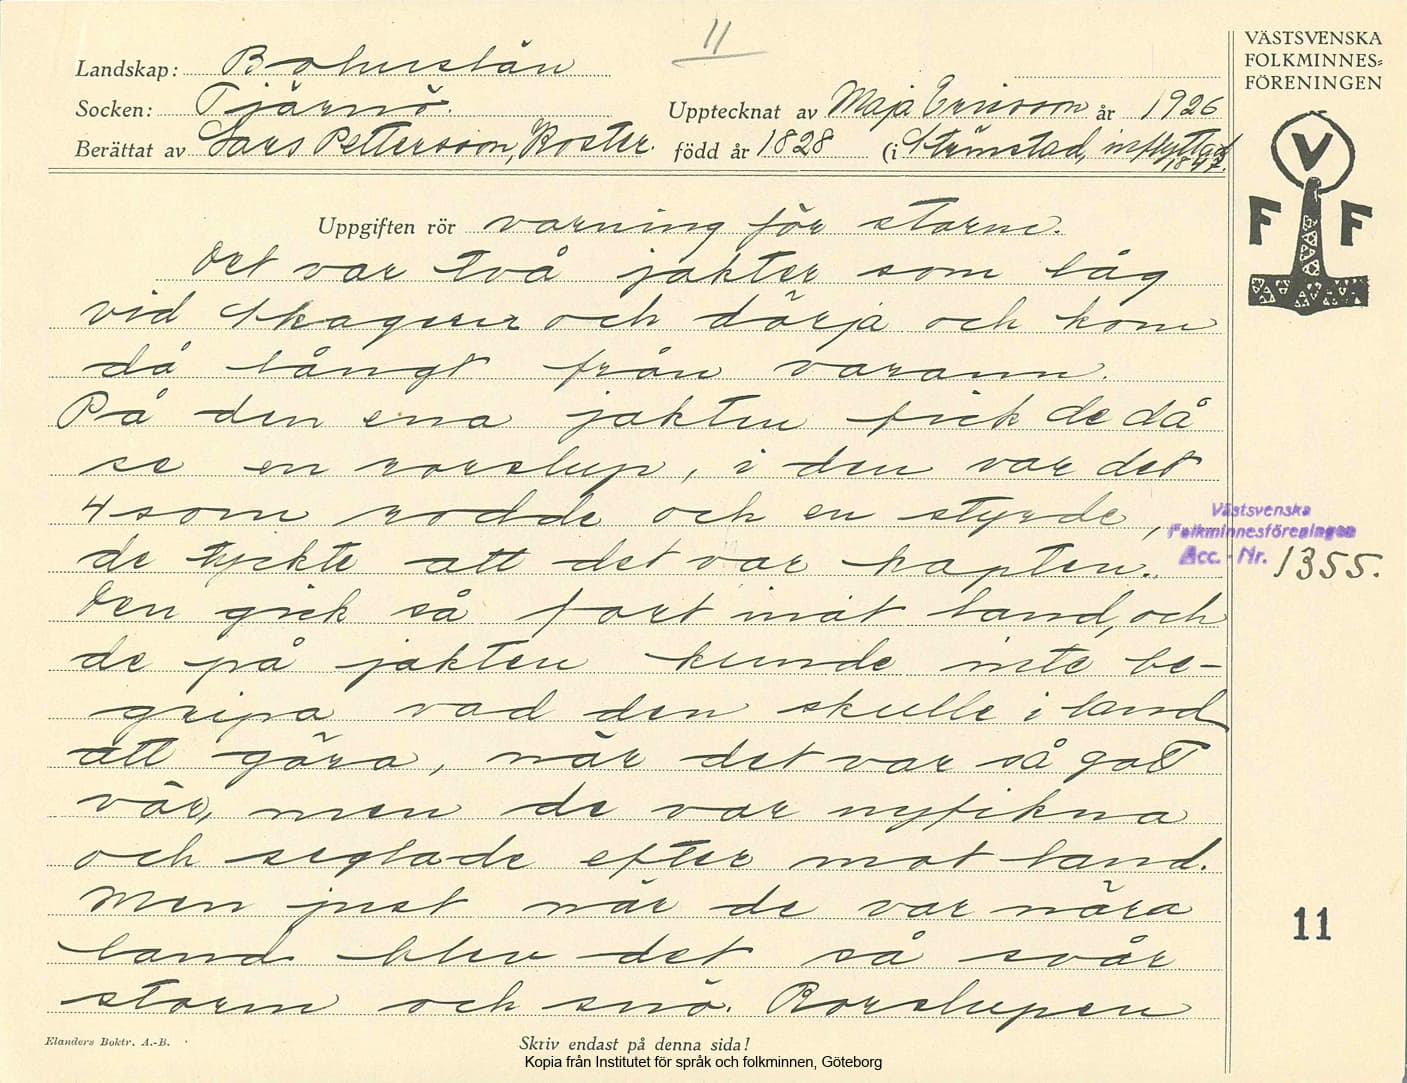 11
Landskap: Bohuslän
Socken: Tjärnö.
Upptecknat av Maja Ericson år 1926
Berättat av Lars Pettersson, Koster. född år 1828 (i Strömstad, inflyttad 1847.
VÄSTSVENSKA
FOLKMINNES-
FÖRENINGEN
V
F F
Uppgiften rör varning för storm.
Det var två jakter som låg
vid Skagerrr och dörja och kom
då långt från varann.
På den ena jakten fick de då
se en rorslup, i den var det
4 som rodde och en styrde,
de tyckte att det var kapten.
Den gick så fort inåt land, och
de på jakten kunde inte be-
gripa vad den skulle i land
att göra, när det var så gott
vär, men de var nyfikna
och seglade efter mot land.
Men just när de var nära
land blev det så svår
storm och snö. Rorslupen
Västsvenska
Folkminnesföreningen
Acc. - Nr. 1355.
11
Elanders Boktr. A.-B.
Skriv endast på denna sida!
Kopia från Institutet för språk och folkminnen, Göteborg